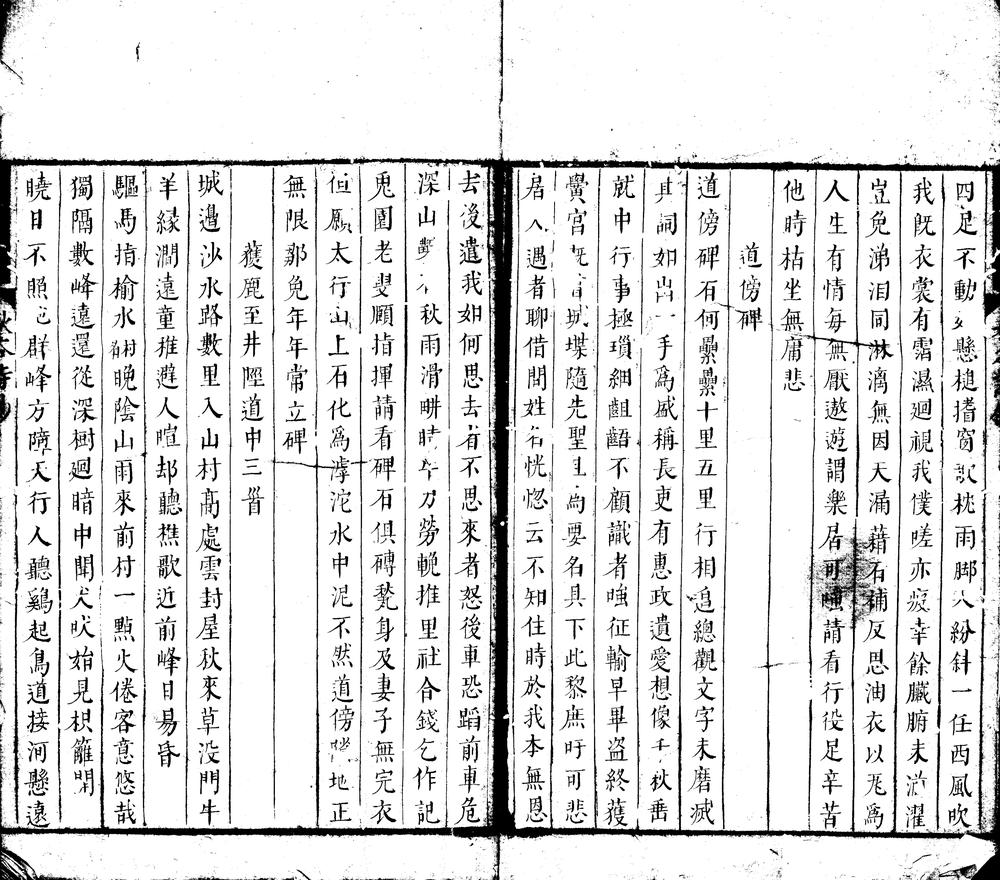 四足不動如懸槌撐窗欹枕雨腳大紛斜一任西風吹
我旣衣裳有霑濕廻視我僕嗟亦疲幸餘臟腑未湔濯
豈免涕泪同淋漓無因天漏藉石補反思油衣以瓦爲
人生有情每無厭遨遊謂樂居可嗤請看行役足辛苦
他時枯坐無庸悲
道傍碑
道傍碑石何纍纍十里五里行相追總觀文字未磨滅
其詞如出一手爲盛稱長吏有惠政遺愛想像千秋垂
就中行事極瑣細齟齬不顧識者嗤征輸早畢盜終獲
黌宮旣葺城堞隨先聖且爲要名具下此黎庶吁可悲
居人遇者聊借問姓名恍惚云不知住時於我本無恩
去後遣我如何思去者不思來者怒後車恐蹈前車危
深山鑿石秋雨滑耕時牛力勞輓推里社合錢乞作記
兎園老叟願指揮請看碑石俱磚甃身及妻子無完衣
但願太行山上石化爲滹沱水中泥不然道傍隙地正
無限那免年年常立碑
獲鹿至井陘道中三首
城邊沙水路數里入山村高處雲封屋秋來草没門牛
羊緣澗遠童稚避人喧却聽樵歌近前峰日易昏
驅馬指榆水 晚陰山雨來前村一點火倦客意悠哉
獨隔數峰遠還從深樹廻暗中聞犬吠始見枳籬開
曉日不照 群峰方障天行人聽鷄起鳥道接河懸遠